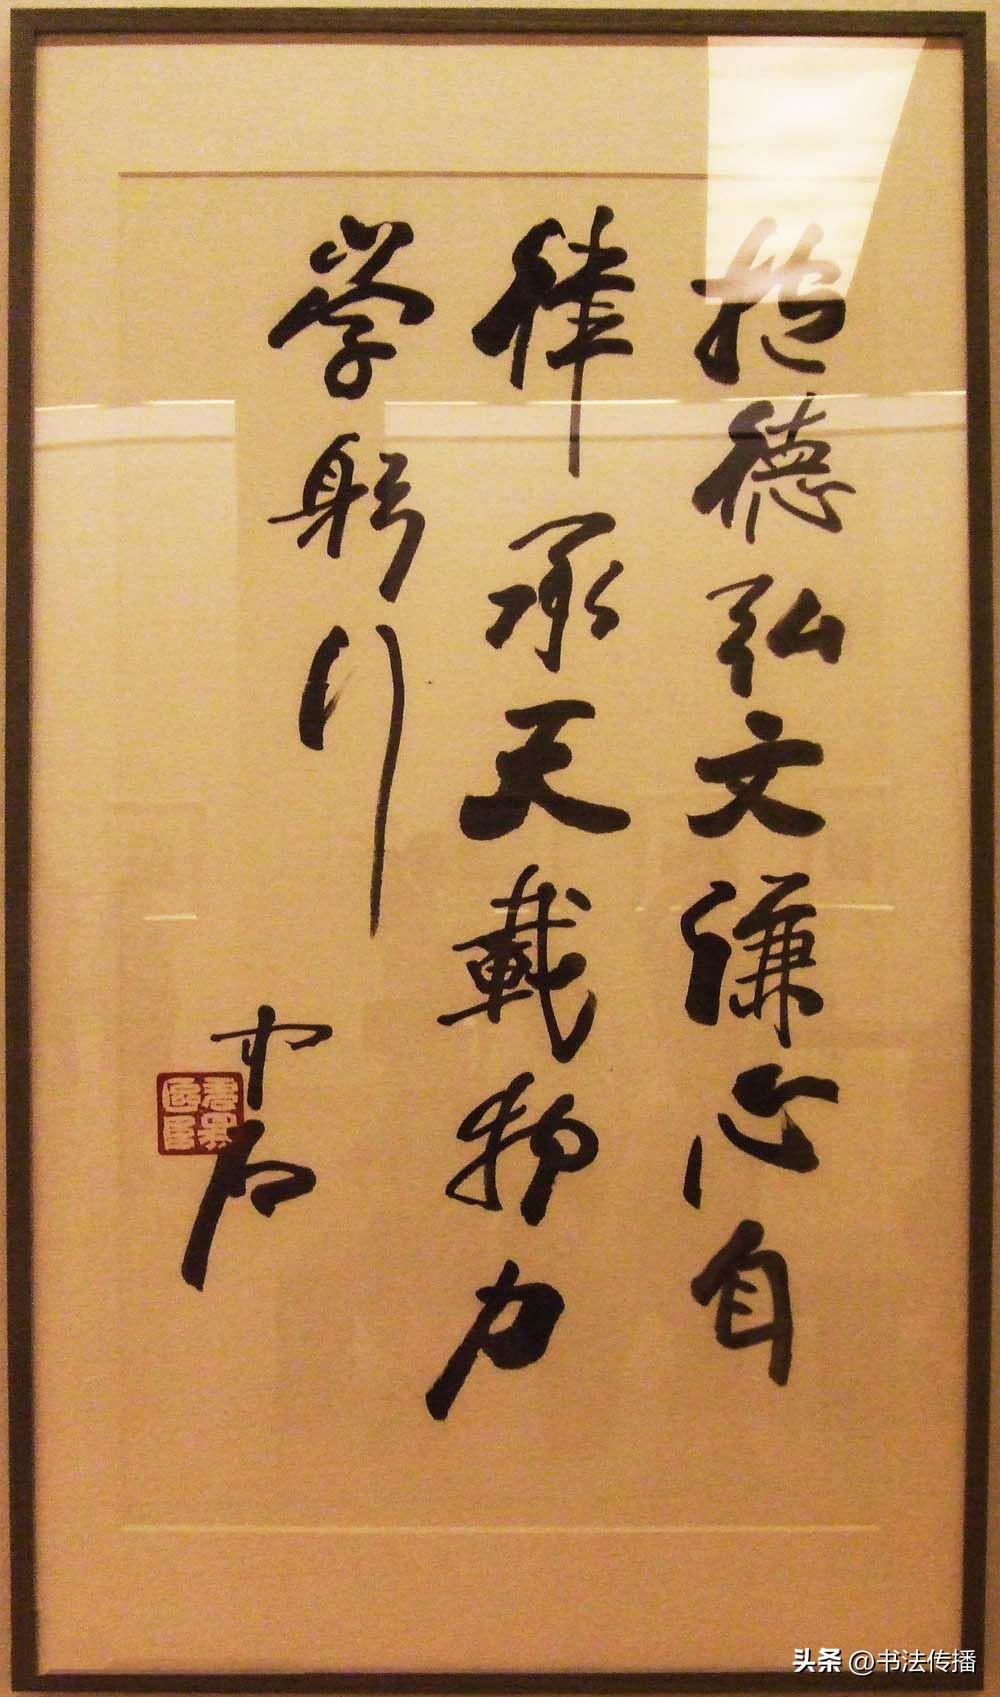 抱德弘文谦心自
律承天載物力
学躬行
头条 @书法传播